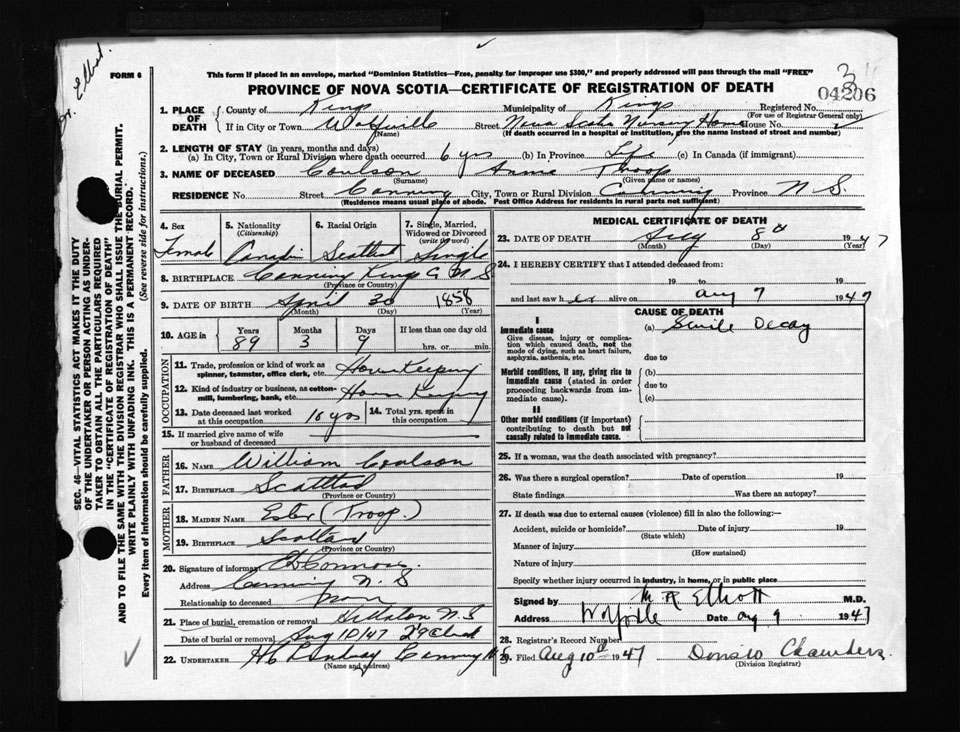 Elliot
FORM 6
This form if placed in an envelope, marked "Dominion Statistics—Free, penalty for improper use $300," and properly addressed will pass through the mail "FREE"
PROVINCE OF NOVA SCOTIA—CERTIFICATE OF REGISTRATION OF DEATH
04206
1. PLACE OF DEATH
County of Kings Municipality of Kings Registered No.
(For use of Registrar General only)
If in City or Town Wolfville Street Nova Scotia Nursing Home House No.
(Name) (If death occurred in a hospital or institution, give the name instead of street and number)
2. LENGTH OF STAY (in years, months and days)
(a) In City, Town or Rural Division where death occurred 6 yrs (b) In Province Life (c) In Canada (if immigrant)
3. NAME OF DECEASED Coulson Annie Troop
(Surname) (Given name or names)
RESIDENCE No. Street Canning City, Town or Rural Division Canning Province N S.
(Residence means usual place of abode. Post Office Address for residents in rural parts not sufficient)
4. Sex
Female
5. Nationality
(Citizenship)
Canadin
6. Racial Origin
Scottish
7. Single, Married, Widowed or Divorced
(write the word)
Single
8. BIRTHPLACE Canning Kings Co N S
(Province or Country)
9. DATE OF BIRTH April 30 1858
(Month) (Day) (Year)
10. AGE in
Years Months Days If less than one day old
89 3 9 hrs. or min.
OCCUPATION
11. Trade, profession or kind of work as spinner, teamster, office clerk, etc. House Keeping
12. Kind of industry or business, as cotton-mill, lumbering, bank, etc. House Keeping
13. Date deceased last worked at this occupation 10 yrs
14. Total yrs. spent in this occupation
15. If married give name of wife or husband of deceased
FATHER
16. NAME William Coulson
17. BIRTHPLACE Scotland
(Province or Country)
MOTHER
18. MAIDEN NAME Ester (Troop)
19. BIRTHPLACE Scotland
(Province or Country)
20. Signature of informant
Address Canning N. S
Relationship to deceased
21. Place of burial, cremation or removal Hillaton N S
Date of burial or removal Aug 10/47
22. UNDERTAKER Canning N S
(Name and address)
MEDICAL CERTIFICATE OF DEATH
23. DATE OF DEATH 8th 1947
(Month) (Day) (Year)
24. I HEREBY CERTIFY that I attended deceased from:
19 to 19
and last saw her alive on Aug 7 1947
CAUSE OF DEATH
I
Immediate cause
Give disease, injury or complication which caused death, not the mode of dying, such as heart failure, asphyxia, asthenia, etc.
(a) Senile Decay
due to
Morbid conditions, if any, giving rise to immediate cause (stated in order proceeding backwards from immediate cause).
(b)
due to
(c)
II
Other morbid conditions (if important) contributing to death but not causally related to immediate cause.
25. If a woman, was the death associated with pregnancy?
26. Was there a surgical operation? Date of operation 19
State findings Was there an autopsy?
27. If death was due to external causes (violence) fill in also the following:—
Accident, suicide or homicide? Date of injury 19
(State which)
Manner of injury
(How sustained)
Nature of injury
Specify whether injury occurred in industry, in home, or in public place
Signed by M R Elliott M.D.
Address Wolfville Date Aug 9 1947
28. Registrar's Record Number
29. Filed Aug 10th 1947 Chambers
(Division Registrar)
SEC. 46—VITAL STATISTICS ACT MAKES IT THE DUTY
OF THE UNDERTAKER OR PERSON ACTING AS UNDER-
TAKER TO OBTAIN ALL THE PARTICULARS REQUIRED
IN THE "CERTIFICATE OF REGISTRATION OF DEATH"
AND TO FILE THE SAME WITH THE DIVISION REGISTRAR WHO SHALL ISSUE THE BURIAL PERMIT.
WRITE PLAINLY WITH UNFADING INK. THIS IS A PERMANENT RECORD.
Every item of information should be carefully supplied. (See reverse side for instructions.)